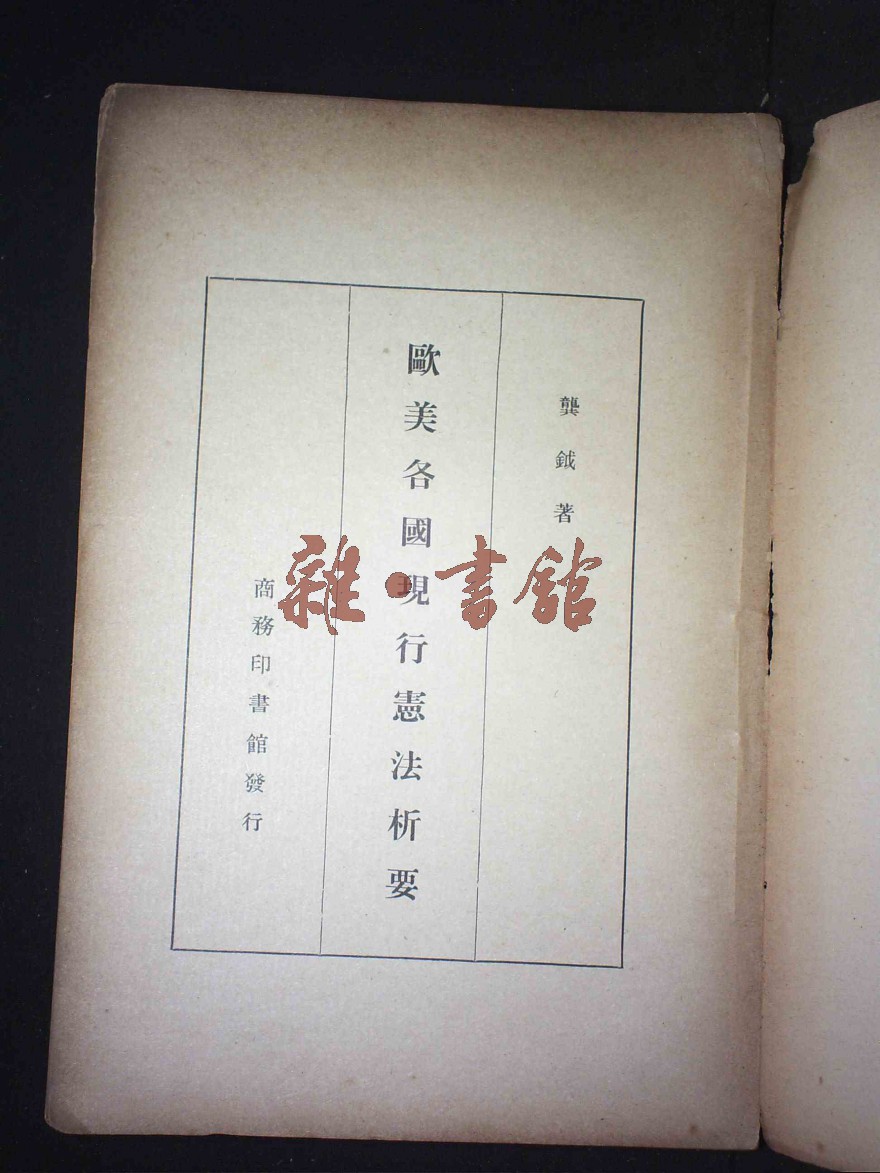 龔鉞著
歐美各國現行憲法析要
商務印書館發行
雜·書館